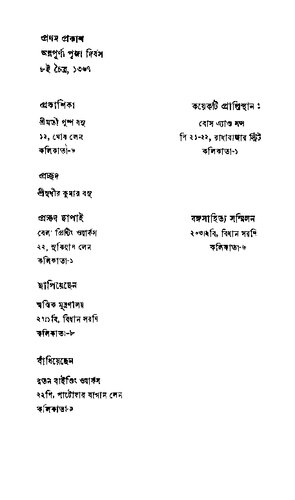 প্রথম প্রকাশ
অন্নপূর্ণা পূজা দিবস
৮ই চৈত্র, ১৩৬৭
প্রকাশিকা
শ্রীমতী পুষ্প বসু
১২, ঘোষ লেন
কলিকাতা-৬
প্রচ্ছদ
শ্রীসুধীর কুমার বসু
প্রচ্ছদ ছাপাই
প্রিন্টিং ওয়ার্কস
২২, লেন
কলিকাতা-১
ছাপিয়েছেন
স্বস্তিক মুদ্রণালয়
বিধান সরণি
কলিকাতা-৮
বাঁধিয়েছেন
বাইন্ডিং ওয়ার্কস
২২পি, বাগান লেন
কলিকাতা-৯
কয়েকটি প্রাপ্তিস্থান :
বোস এ্যাণ্ড সন্স
পি ২১-২২, রাধাবাজার স্ট্রিট
কলিকাতা-১
বঙ্গসাহিত্য সম্মিলন
বিধান সরণি
কলিকাতা-৬